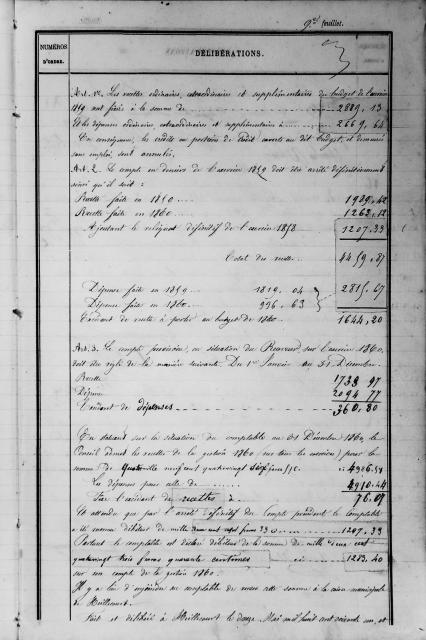 9e feuillet.
NUMÉROS D'ORDRE.
DÉLIBÉRATIONS.
Art. 1er Les recettes ordinaires, extraordinaires et supplémentaires du budget de l'exercice
1859 sont fixées à la somme de 2889, 13
Et les dépenses ordinaires extraordinaires et supplémentaires à 2669, 64
En conséquence, les crédits ou portions de crédit ouverts au dit budget, et demeurés
sans emploi sont annulés.
Art. 2. Le compte en deniers de l'exercice 1859 doit être arrêté définitivement
ainsi qu'il suit :
Recette faite en 1859 1989, 42
Recette faite en 1860 1263, 12
Ajoutant le reliquat définitif de l'exercice 1858 1207. 33
Total des recettes 4459, 87
Dépense faite en 1859 1819, 04
Dépense faite en 1860 996, 63 2815, 67
Excédant de recette à porter au budget de 1860 1644, 20
Art. 3. Le compte provisoire, en situation du Receveur, sur l'exercice 1860,
doit être réglé de la manière suivante. Du 1er Janvier au 31 Décembre.
Recette 1733 97
Dépense 2094 77
Excédant de dépenses 360, 80
En statuant sur la situation du comptable au 31 Décembre 1860, le
Conseil admet les recettes de la gestion 1860 (sur tous les exercices) pour la
somme de Quatre mille neuf cent quatre vingt six francs
Les dépenses pour celle de 4910.44
Fixe l'excédant de recettes à 76.09
Et attendu que par l'arrêt définitif du compte précédent le comptable
a été reconnu débiteur de mille deux cent sept francs 33 c 1207. 33
Partant le comptable est déclaré débiteur de la somme de mille deux cent
quatre vingt trois francs quarante centimes 1283, 40
sur son compte de la gestion 1860.
Il y a lieu d'enjoindre au comptable de verser cette somme à la caisse municipale
Fait et délibéré à le douze Mai mil huit cent soixante un, et